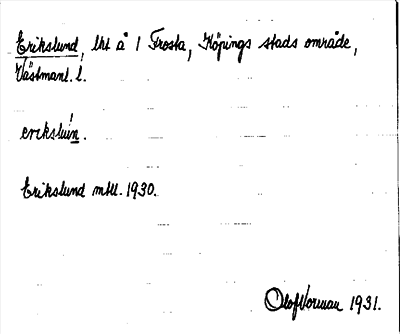 Erikslund, lht å 1 Frosta, Köpings stads område,
Västmanl. l.
erikslun.
Erikslund mtll. 1930.
Olof Norman 1931.